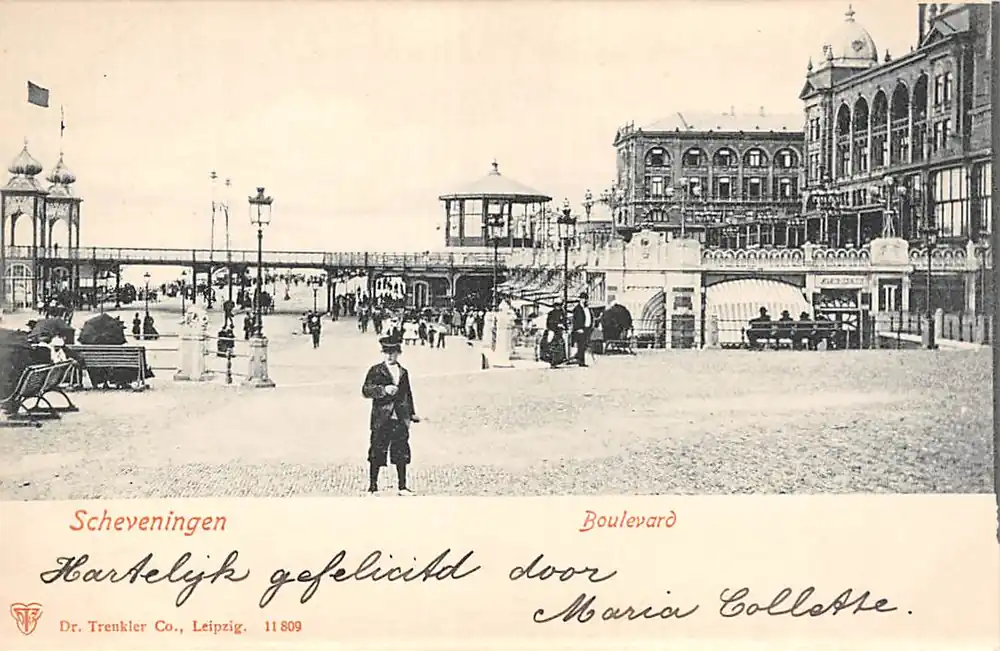 Scheveningen Boulevard
Hartelijk gefelicitd door
Maria Collette.
Dr. Trenkler Co., Leipzig. 11 809